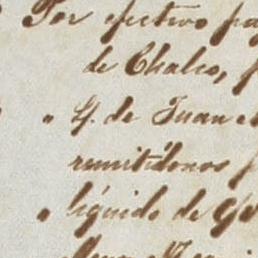 Por efectivo pa
de Chalco, p
" Y. de Juan
remitídonos p
" líquido de